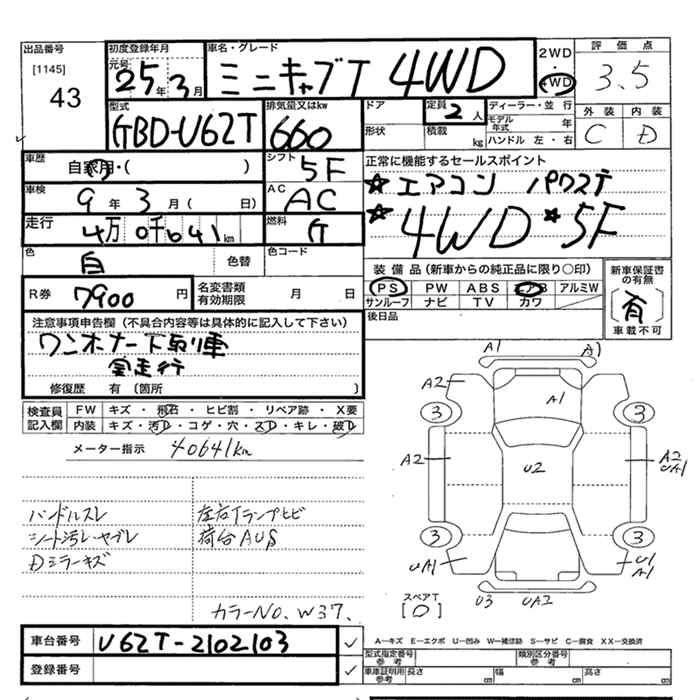 出品番号
[1145]
43
初度登録年月
元号 25年 3月
車名・グレード
ミニキャブT 4WD
2WD
・
4WD
評価点
3.5
外装 内装
C D
型式
GBD-U62T
排気量又はkw
660
ドア
形状
定員 2人
積載 kg
ディーラー・並行
モデル年式 年
ハンドル 左・右
車歴
自家用・( )
シフト
5F
正常に機能するセールスポイント
☆エアコン パワステ
☆4WD ☆5F
車検
9年 3月( 日)
AC
AC
走行
4万0千641km
燃料
G
色
白
色替
色コード
R券 7900円
名変書類有効期限 月 日
装備品(新車からの純正品に限り○印)
PS PW ABS エアB アルミW
サンルーフ ナビ TV カワ
新車保証書の有無
[有]
車載不可
後日品
注意事項申告欄(不具合内容等は具体的に記入して下さい)
ワンオーナー下取り車
実走行
修復歴 有 〔箇所 〕
検査員記入欄
FW キズ・飛石・ヒビ割・リペア跡・X要
内装 キズ・汚レ・コゲ・穴・スレ・キレ・破レ
メーター指示 40641km
ハンドルスレ
シート汚レ・ヤブレ
Dミラーキズ
左右Tランプヒビ
荷台AUS
カラーNo. W37.
A1 A1
A2 A1
3 3
A2 U2 A2
UA1
3 3
UA1 U1
A1
U3 UA2
スペアT
[0]
A―キズ E―エクボ U―凹み W―補修跡 S―サビ C―腐食 XX―交換済
車台番号 U62T-2102103
登録番号
型式指定番号参考
類別区分番号参考
車庫証明用参考 長さ cm 幅 cm 高さ cm